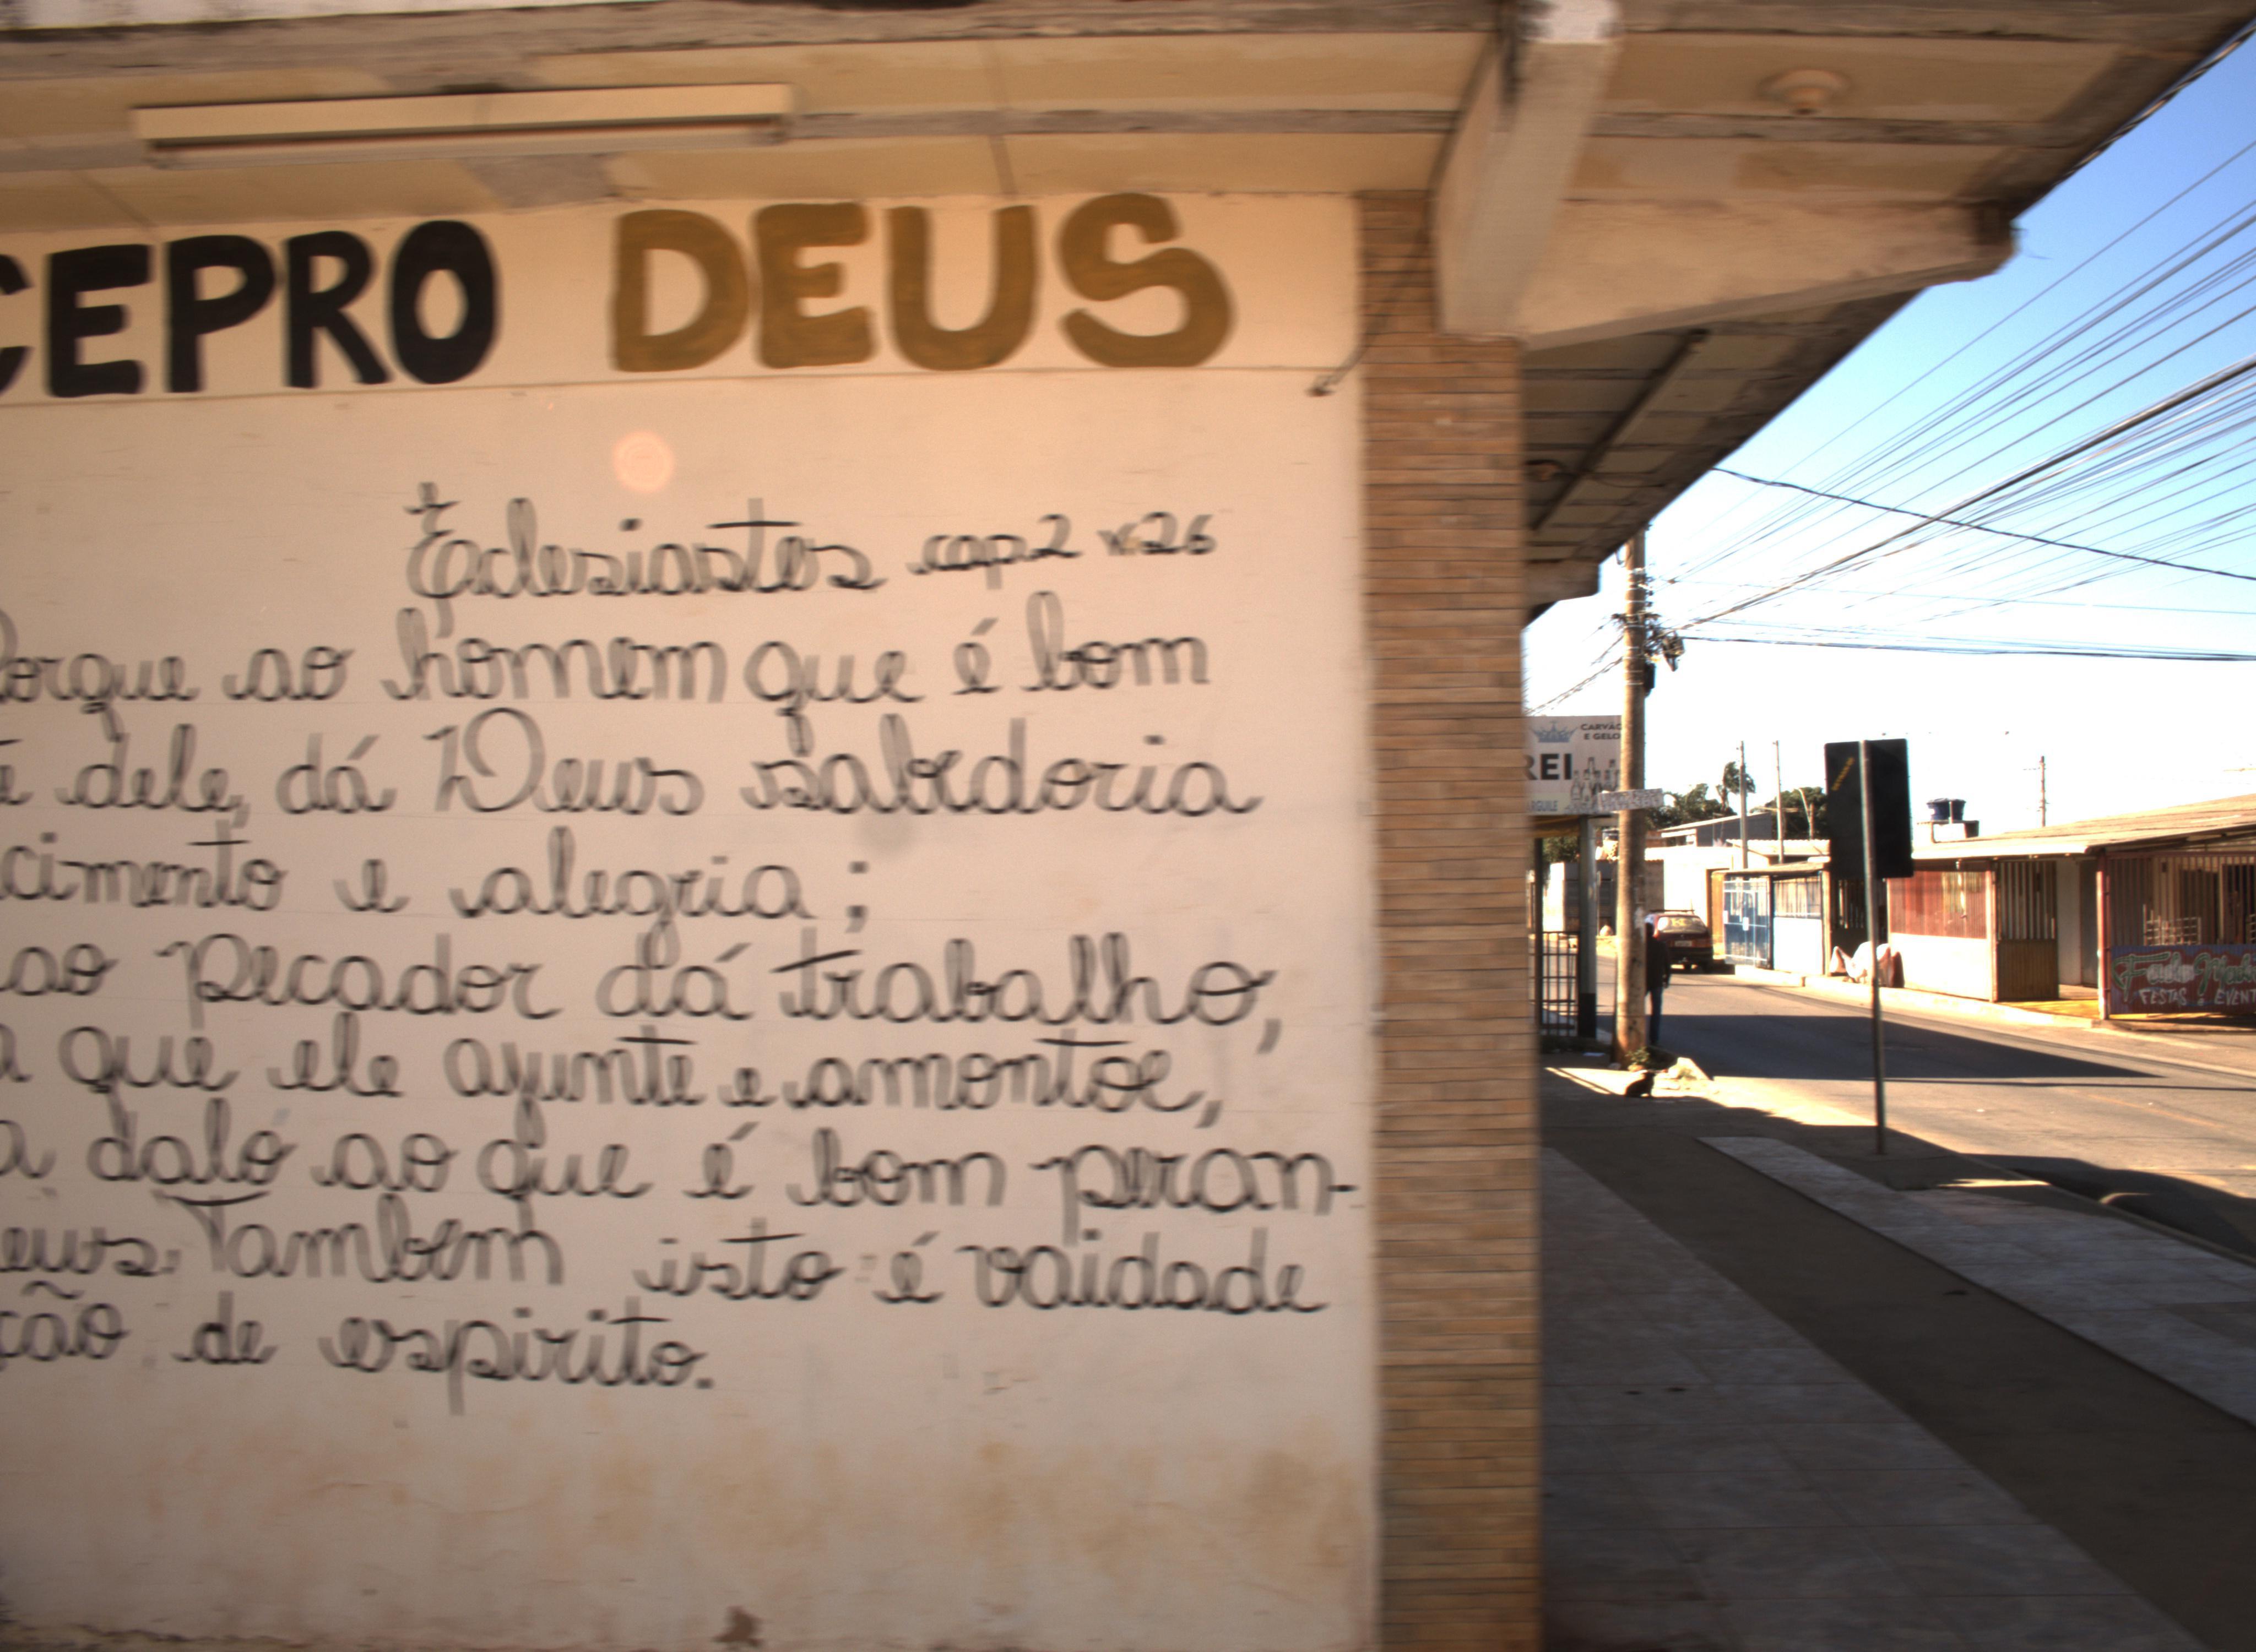 CEPRO DEUS
Eclesiastes cap2 v.26
Porque ao homem que é bom
dele, dá Deus sabedoria
cimento e alegria;
ao pecador dá trabalho,
que ele ajunte e amontoe,
dalo ao que é bom peran-
eus. Tambem isto é vaidade
ção de espirito.
CARVÃO
E GELO
REI
FESTAS E EVENT